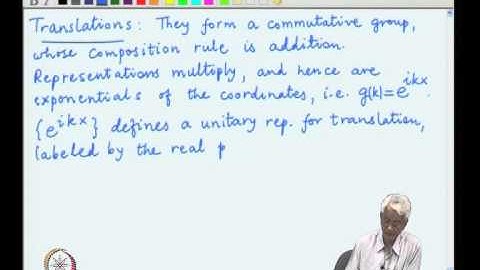 Translations: They form a commutative group,
whose composition rule is addition.
Representations multiply, and hence are
exponentials of the coordinates, i.e. g(k)=e^{ikx}.
{e^{ikx}} defines a unitary rep. for translation,
labeled by the real p